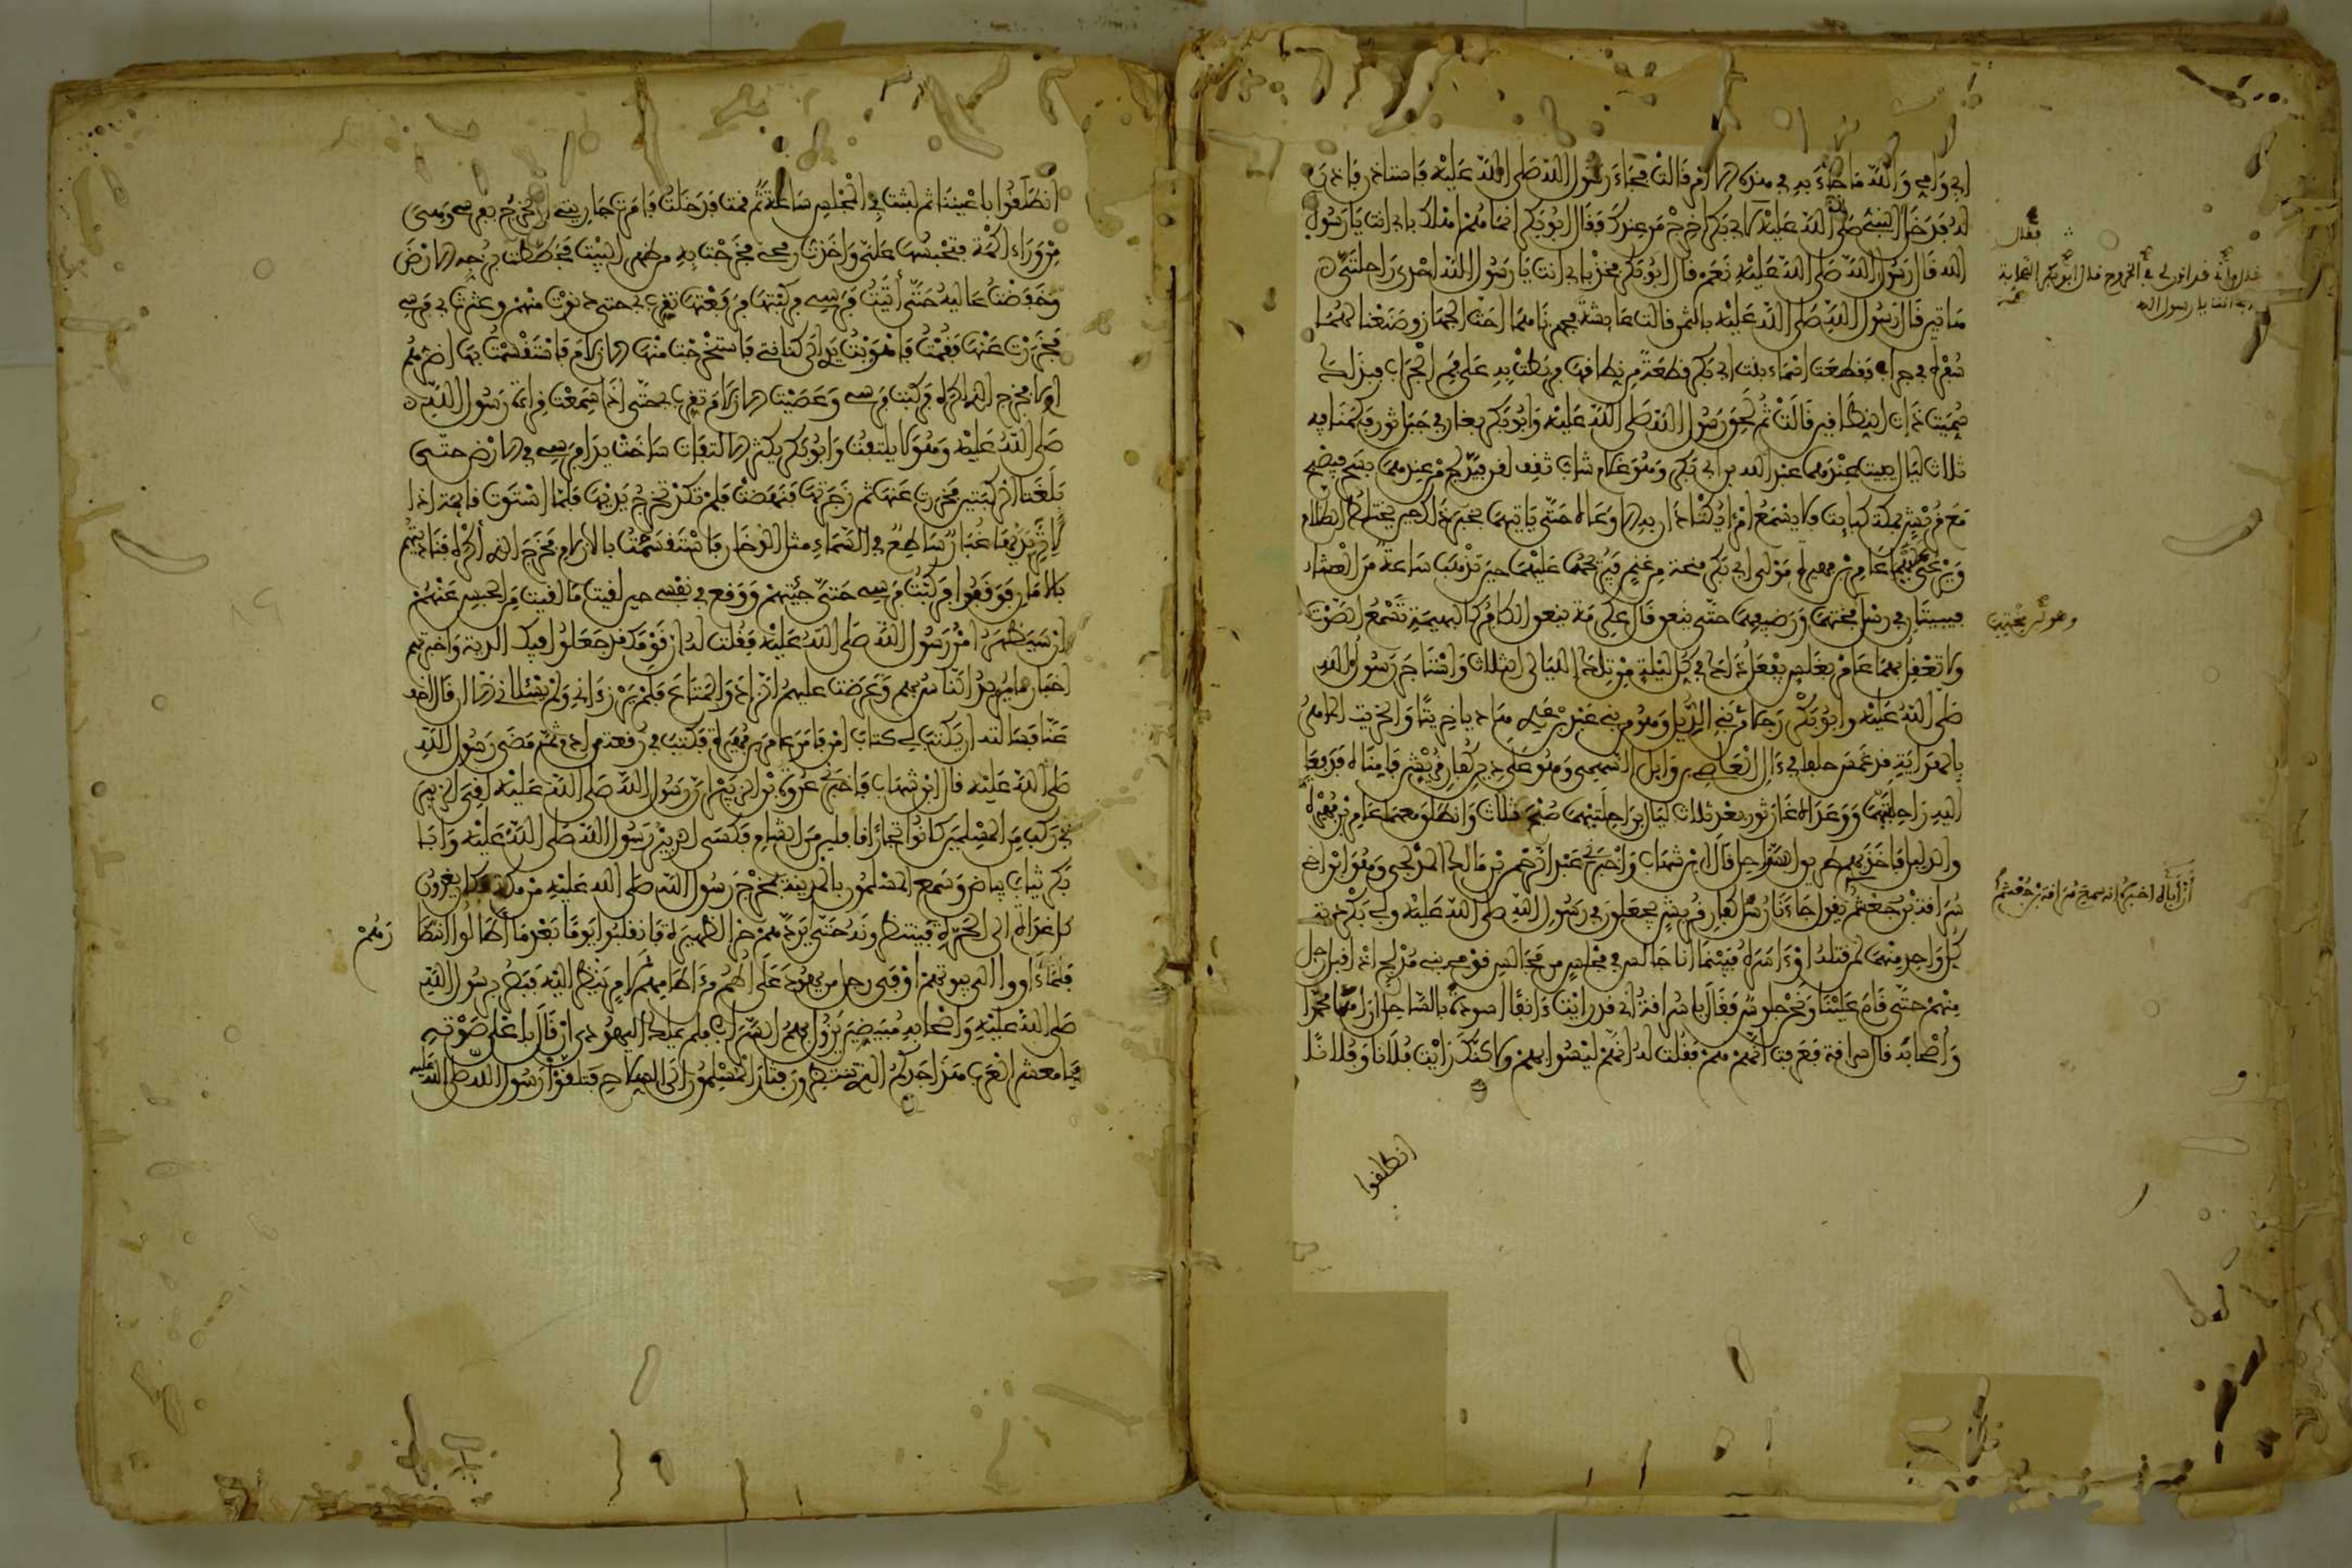 ابي وامي والله ما جاء به في هذه الا امر قالت فجاء رسول الله صلى الله عليه فاستاذن فاذن
له فدخل فقال النبي صلى الله عليه لابي بكر اخرج من عندك فقال ابو بكر انما هم اهلك بابي انت يا رسول
الله قال رسول الله صلى الله عليه نعم قال ابو بكر فخذ بابي انت يا رسول الله احدى راحلتي
هاتين قال رسول الله صلى الله عليه بالثمن قالت عائشة فجهزناهما احث الجهاز وصنعنا لهما
سفرة في جراب فقطعت اسماء بنت ابي بكر قطعة من نطاقها فربطت به على فم الجراب فبذلك
سميت ذات النطاقين قالت ثم لحق رسول الله صلى الله عليه وابو بكر بغار في جبل ثور فكمنا فيه
ثلاث ليال يبيت عندهما عبد الله بن ابي بكر وهو غلام شاب ثقف لقن فيدلج من عندهما بسحر فيصبح
مع قريش بمكة كبايت فلا يسمع امرا يكتاذان به الا وعاه حتى ياتيهما بخبر ذلك حين يختلط الظلام
ويرعى عليهما عامر بن فهيرة مولى ابي بكر منحة من غنم فيريحها عليهما حين تذهب ساعة من العشاء
فيبيتان في رسل منحتهما ورضيفهما حتى ينعق قال عكرمة ينعق الكافر كالبهيمة تسمع الصوت
ولا تعقل بهما عامر بغلس يفعل ذلك في كل ليلة من تلك الليالي الثلاث واستاجر رسول الله
صلى الله عليه وابو بكر رجلا من بني الديل وهو من بني عبد بن عدي هاديا خريتا والخريت الماهر
بالهداية قد غمس حلفا في ءال العاصي بن وايل السهمي وهو على دين كفار قريش فامناه فدفعا
اليه راحلتيهما وواعداه غار ثور بعد ثلاث ليال براحلتيهما صبح ثلاث وانطلق معهما عامر بن فهيرة
والدليل فاخذ بهم طريق السواحل قال ابن شهاب واخبرني عبد الرحمن بن مالك المدلجي وهو ابن اخي
سراقة بن جعشم يقول جاءنا رسل كفار قريش يجعلون في رسول الله صلى الله عليه وابي بكر دية
كل واحد منهما لمن قتله او اسره فبينما انا جالس في مجلس من مجالس قومي بني مدلج اذ اقبل رجل
منهم حتى قام علينا ونحن جلوس فقال يا سراقة اني قد رايت ءانفا اسودة بالساحل اراها محمدا
واصحابه قال سراقة فعرفت انهم هم فقلت له انهم ليسوا بهم ولاكنك رايت فلانا وفلانا
انطلقوا
فقال
قال فانه قد اذن لي في الخروج فقال ابو بكر الصحابة
بابي انت يا رسول الله
وهو لبن منحتهما
ان اباه اخبره انه سمع سراقة بن جعشم
انطلقوا باعيننا ثم لبثت في المجلس ساعة ثم قمت فدخلت فامرت جاريتي ان تخرج بفرسي وهي
من وراء اكمة فتحبسها علي واخذت رمحي فخرجت به من ظهر البيت فخططت بزجه الارض
وخفضت عاليه حتى اتيت فرسي فركبتها فرفعتها تقرب بي حتى دنوت منهم وعثرت بي فرسي
فخررت عنها فقمت فاهويت يدي الى كنانتي فاستخرجت منها الازلام فاستقسمت بها اضرهم
ام لا فخرج الذي اكره فركبت فرسي وعصيت الازلام تقرب بي حتى اذا سمعت قراءة رسول الله
صلى الله عليه وهو لا يلتفت وابو بكر يكثر الالتفات ساخت يدا فرسي في الارض حتى
بلغتا الركبتين فخررت عنها ثم زجرتها فنهضت فلم تكد تخرج يديها فلما استوت قائمة اذا
لاثر يديها غبار ساطع في السماء مثل الدخان فاستقسمت بالازلام فخرج الذي اكره فناديتهم
بالامان فوقفوا فركبت فرسي حتى جيتهم ووقع في نفسي حين لقيت ما لقيت من الحبس عنهم
ان سيظهر امر رسول الله صلى الله عليه فقلت له ان قومك قد جعلوا فيك الدية واخبرتهم
اخبار ما يريد الناس بهم وعرضت عليهم الزاد والمتاع فلم يرزءاني ولم يسئلاني الا ان قال اخف
عنا فسالته ان يكتب لي كتاب امن فامر عامر بن فهيرة فكتب في رقعة من ادم ثم مضى رسول الله
صلى الله عليه قال ابن شهاب فاخبرني عروة بن الزبير ان رسول الله صلى الله عليه لقي الزبير
في ركب من المسلمين كانوا تجارا قافلين من الشام فكسى الزبير رسول الله صلى الله عليه وابا
بكر ثياب بياض وسمع المسلمون بالمدينة بمخرج رسول الله صلى الله عليه من مكة فكانوا يغدون
كل غداة الى الحرة فينتظرونه حتى يردهم حر الظهيرة فانقلبوا يوما بعد ما اطالوا انتظا
رهم
فلما اووا الى بيوتهم اوفى رجل من يهود على اطم من ءاطامهم لامر ينظر اليه فبصر برسول الله
صلى الله عليه واصحابه مبيضين يزول بهم السراب فلم يملك اليهودي ان قال باعلى صوته
يا معشر العرب هذا جدكم الذي تنتظرون فثار المسلمون الى السلاح فتلقوا رسول الله صلى الله عليه